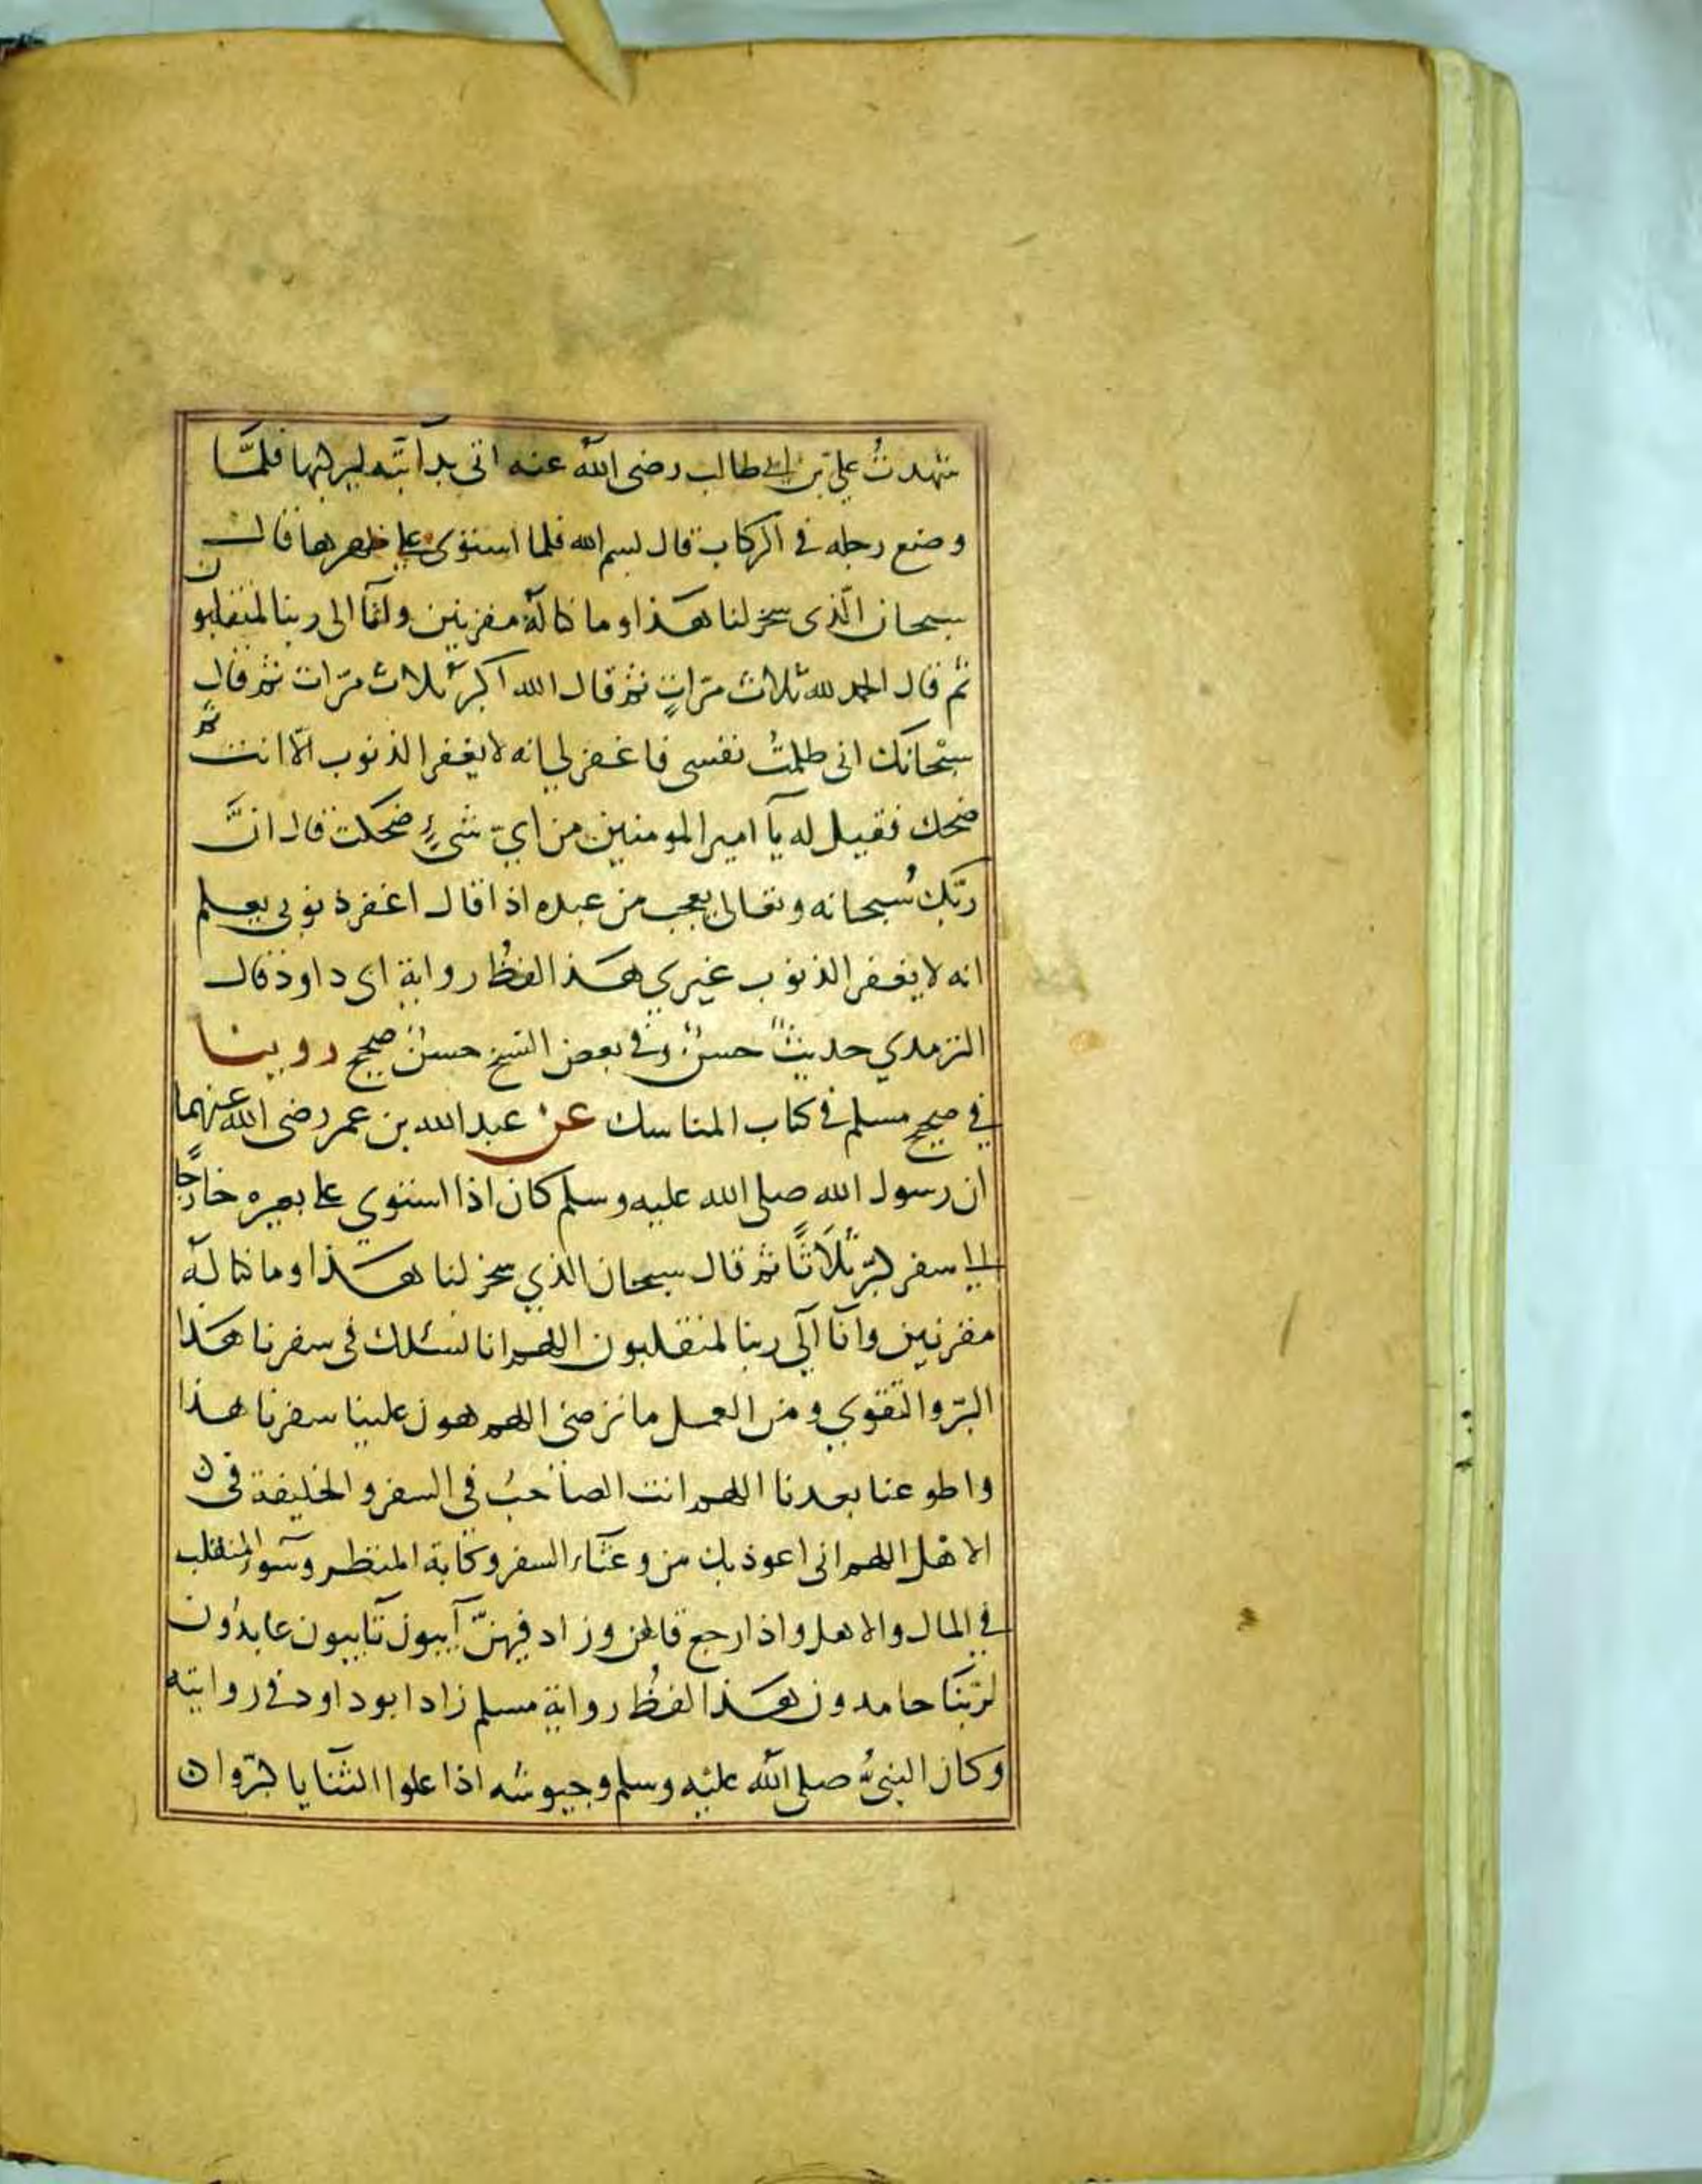 شهدتُ علي بن ابي طالب رضى الله عنه اتى بدآبّته ليركبها فلمَّا
وضع رجله فى الركاب قال بسم الله فلما استوى على ظهرها قال
سبحان الّذى سخر لنا هذا وما كنا لهٗ مقرنين وانّآ الى ربنا لمنقلبون
ثم قال الحمد لله ثلاث مرّاتٍ ثم قال الله اكبر ثلاث مرّات ثم قال
سبْحانك انى ظلمتُ نفسى فاغفر لي انه لا يغفر الذنوب الّا انت ثم
ضحك فقيل له يآ امير المومنين من ايّ شىءٍ ضحكت قال انَّ
ربّك سُبحانه وتعالى يعجب من عبده اذا قال اغفر ذنوبى يعلم
انه لا يغفر الذنوب غيري هذا لفظ رواية ابى داود قال
الترمذي حديثٌ حسنٌ وفى بعض النسخ حسنٌ صحيح روينا
في صحيح مسلم فى كتاب المناسك عن عبد الله بن عمر رضى الله عنهما
ان رسول الله صلى الله عليه وسلم كان اذا استوي على بعيره خارجًا
الى سفر كبّر ثلاثًا ثم قال سبحان الذي سخر لنا هذا وما كنا لهٗ
مقرنين وانّا الٓي ربنا لمنقلبون اللهم انا نسئلك فى سفرنا هذا
البرّ والتقوي ومن العمل ما ترضى اللهم هون علينا سفرنا هذا
واطو عنا بعدنا اللهم انت الصاحبُ فى السفر والخليفة فى ن
الاهْل اللهم انى اعوذ بك من وعثآء السفر وكآبة المنظر وسٓوء المنقلب
في المال والاهل واذا رجع قالهن وزاد فيهنّ آيبون تآيبون عابدُون
لربّنا حامدون هذا لفظُ رواية مسلم زاد ابو داود فى روايته
وكان النبىُّ صلى الله عليْه وسلم وجيوشه اذا علوا الثنايا كبّروا ن